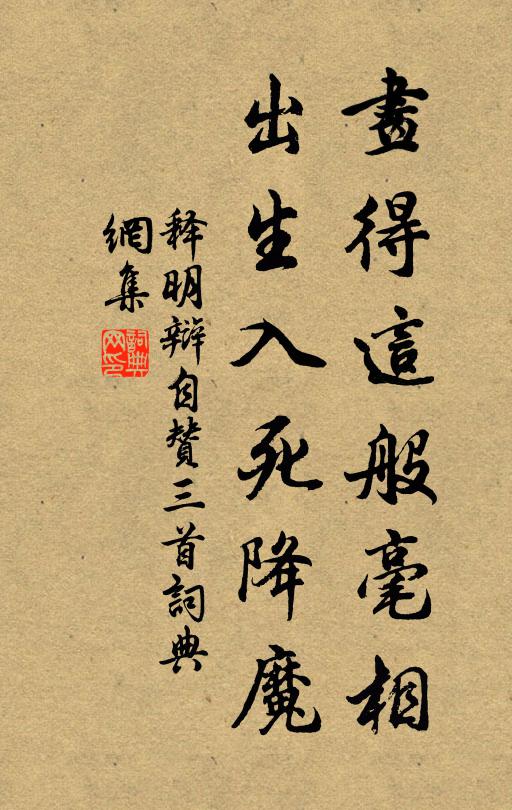 畫得這般毫相
出生入死降魔
释明辯自赞三首詞典
網集
詞典網印